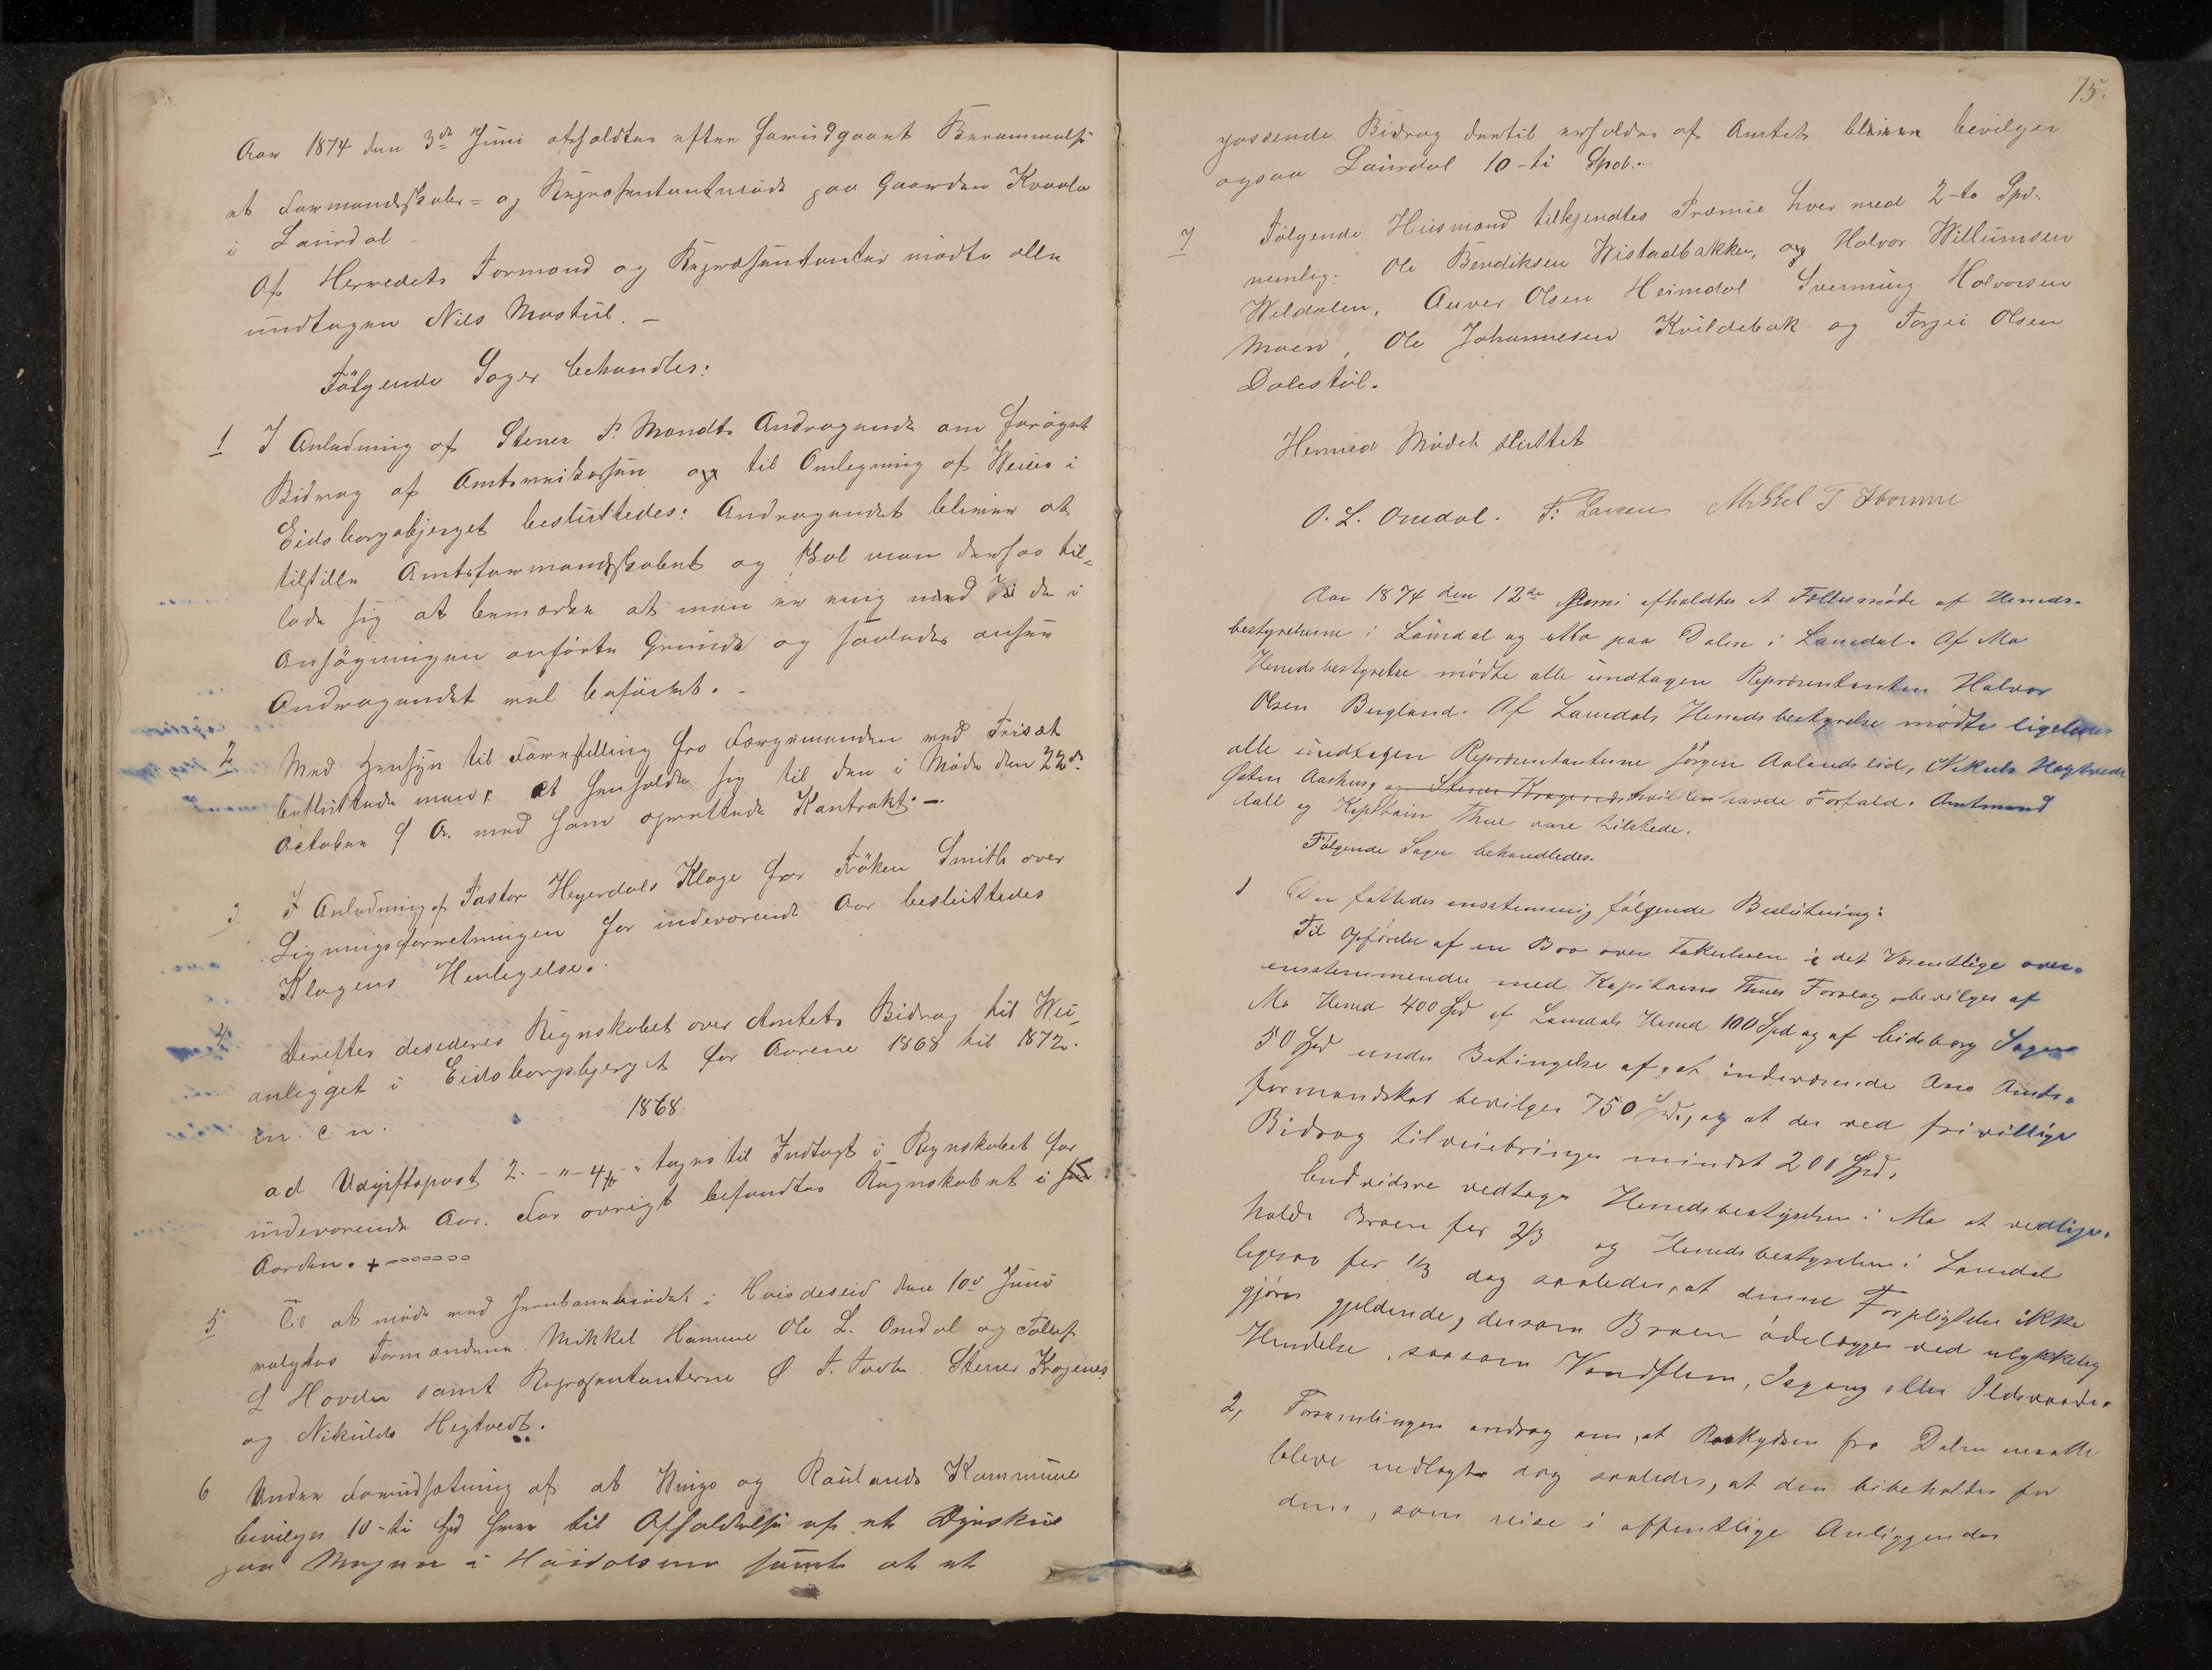 Aar 1874 den 3de Juni afholdtes efter forudgaaet Berammelse
et Formandskabs= og Repræsentantmøde paa Gaarden Kraale
i Laurdal -
Af Herredets Formænd og Repræsentanter mødte alle
undtagen Nils Mostul. -
Følgende Sager behandles:
1 I Anledning af Stener P. Mandts Andragende om forøget
Bidrag af Amtsveikassen og til Omlegning af Veien i
Eidsborgsbjerget besluttedes: Andragendet bliver at
tilstille Amtsformandskabet og skal man derhos til-
lade sig at bemærke at man er enig med de i
Ansøgningen anførte Grunde og saaledes ansees
Andragendet vel beføiet. -
2 Med Hensyn til Forestilling fra Forgemanden med Frisæt
besluttede man: at henholde sig til den i Møde den 22de
October f A. med ham oprettede Kontrakt. -
3 I Anledning af Pastor Heyerdals Klage for Frøken Smith over
Ligningsforretningen for indeværende Aar besluttedes
Klagens Henlegelse.
4 Derefter desideres Regnskabet over Amtets Bidrag til Vei-
anlægget i Eidsborgsbjerget for Aarene 1868 til 1872.
m. c. n. 1868.
ad Udgiftspost 2. - " - 4 - " tages til Indtægt i Regnskabet for
indeværende Aar. For øvrigt befandtes Regnskabet i
Aarden. +
5 Til at møde med Jernbanemødet i Hvideseid den 10de Juni
valgtes Formændene Mikkel Homme Ole L. Omdal og Tollef
L Hovden samt Repræsentanterne Ø T. Tveten Stener Krogenes
og Nikulds Hegtvedt.
6 Under Forudsætning af at Vinje og Raulands Kommune
bevilger 10-ti Spd hver til Afholdelse af et Dyrskue
paa Mogen i Høidalsmo samt at et
75.
passende Bidrag dertil erholdes af Amtet bliver bevilget
ogsaa Laurdal 10-ti Spd.-
7 Følgende Husmænd tilkjendtes Præmie hver med 2-to Spd.
nemlig: Ole Bendiksen Wistadbakken, og Halvor Willumsen
Weldalen, Anver Olsen Heimdal Svenning Halvorsen
Moen, Ole Johannesen Kvildebæk og Torjei Olsen
Dalestul.
Hermed Mødet sluttet
O. L. Omdal. T. Mikkel T Homme
Aar 1874 den 12de Juni afholdtes et Fællesmøde af Herreds-
bestyrelserne i Laurdal og Mo paa Dalen i Laurdal. Af Mo
Herredsbestyrelse mødte alle undtagen Repræsentanten Halvor
Olsen Bergland. Af Laurdals Herredsbestyrelse mødte ligeledes
alle undtagen Repræsentanterne Jørgen Aalandslid, Nikuls Hegtvedt
Østen Aashus, og Stener Krogenes hvilken havde Forfald. Amtmand
Aall og Kaptain Thue vare tilstede.
Følgende Sager behandledes.
1 Der fattedes enstemmig følgende Beslutning:
Til Opførelse af en Bro over Tokeelven i det Væsentlige over-
ensstemmende med Kaptains Thues Forslag bevilges af
Mo Herred 400 Spd af Laurdals Herred 100 Spd og af Eidsborg Sogn
50 Spd under Betingelse af, at indeværende Aars Amts-
formandskab bevilger 750 Spd., og at der ved frivillige
Bidrag tilveiebringes mindst 200 Spd.
Endvidere vedtager Herredsbestyrelsen i Mo at vedlige-
holde Broen for 2/3 og Herredsbestyrelsen i Laurdal
ligesaa for 1/3 dog saaledes, at denne Forpligtelse ikke
gjøres gjeldende, dersom Broen ødelægges ved ulykkelig
Hendelse, saasom Vandflom, Isgang eller Ildsvaade.
2, Forsamlingen androg om, at Roskydsen fra Dalen maatte
blive nedlagt dog saaledes, at den bibeholdes for
dem, som reise i offentlige Anliggender